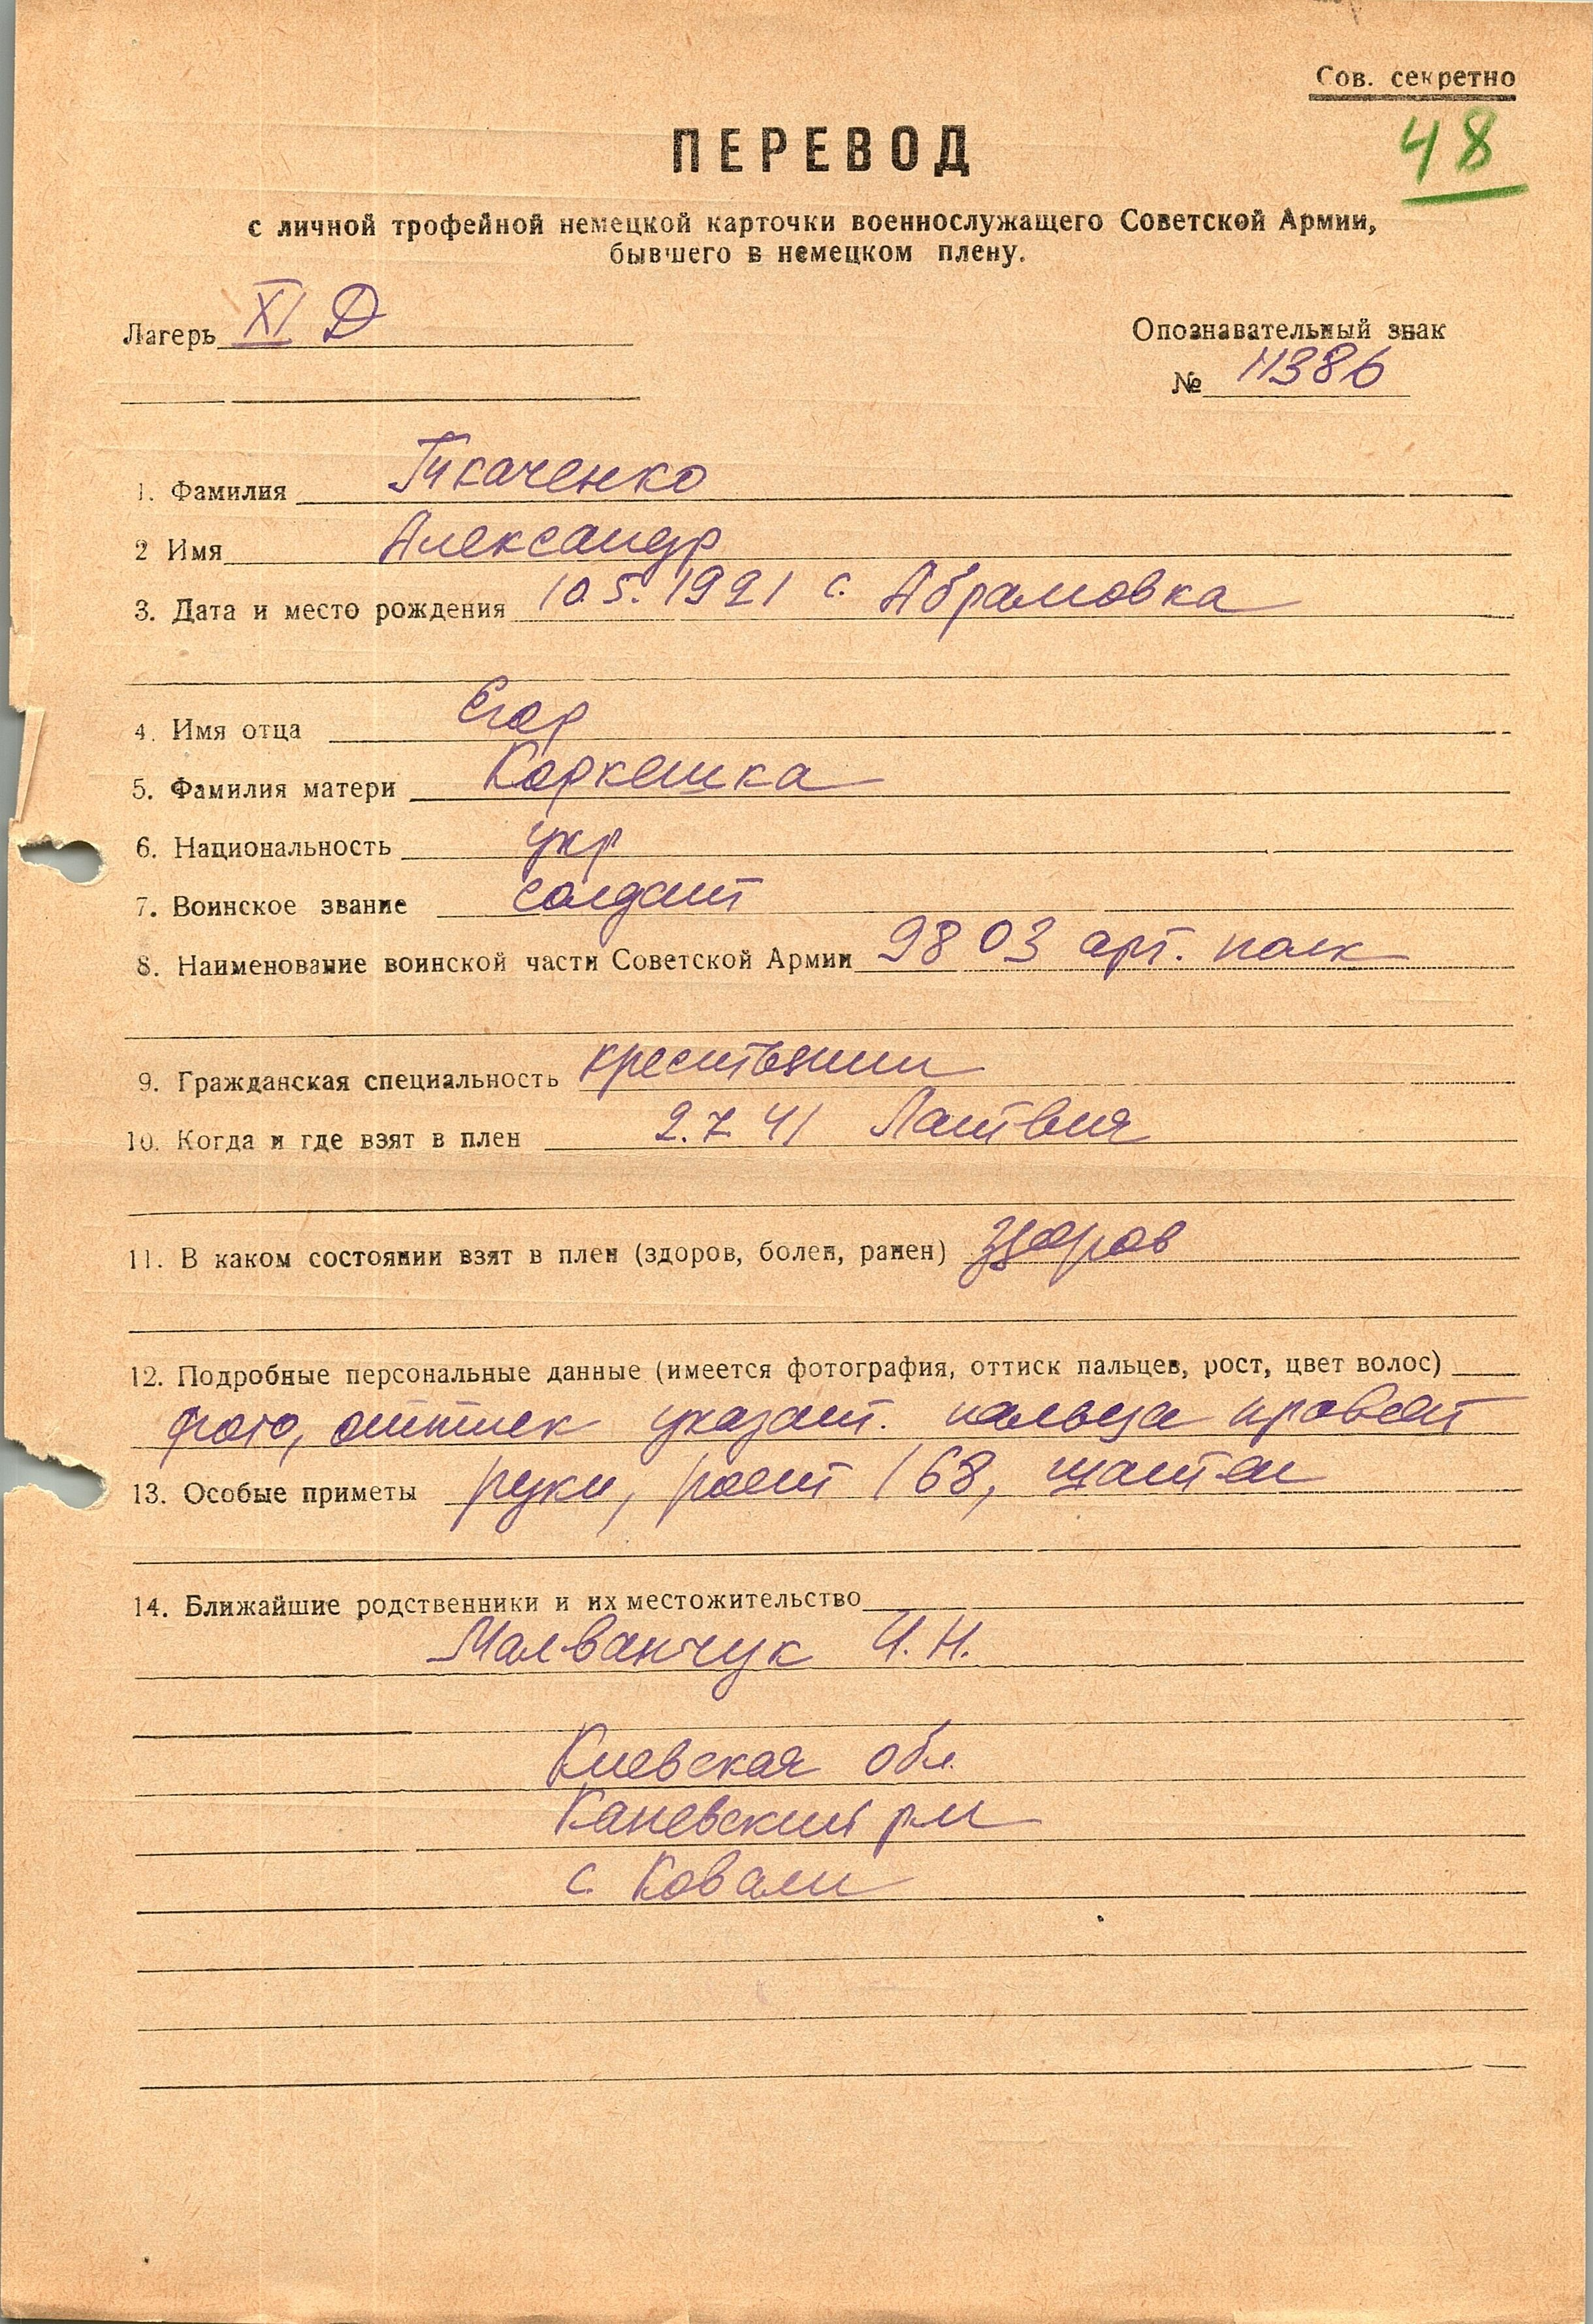 Сов. секретно
48
ПЕРЕВОД
с личной трофейной немецкой карточки военнослужащего Советской Армии,
бывшего в немецком плену.
Лагерь XI Д
Опознавательный знак
№ 11386
1. Фамилия Ткаченко
2 Имя Александр
3. Дата и место рождения 10.5.1921 с. Абрамовка
4. Имя отца Егор
5. Фамилия матери Коркешка
6. Национальность укр
7. Воинское звание солдат
8. Наименование воинской части Советской Армии 9803 арт. полк
9. Гражданская специальность крестьянин
10. Когда и где взят в плен 2.7.41 Латвия
11. В каком состоянии взят в плен (здоров, болен, ранен) здоров
12. Подробные персональные данные (имеется фотография, оттиск пальцев, рост, цвет волос)
фото, оттиск указат. пальца правой
13. Особые приметы руки, рост 168, шатен
14. Ближайшие родственники и их местожительство
Малванчук И.Н.
Киевская обл.
Каневский р-н
с. Ковали